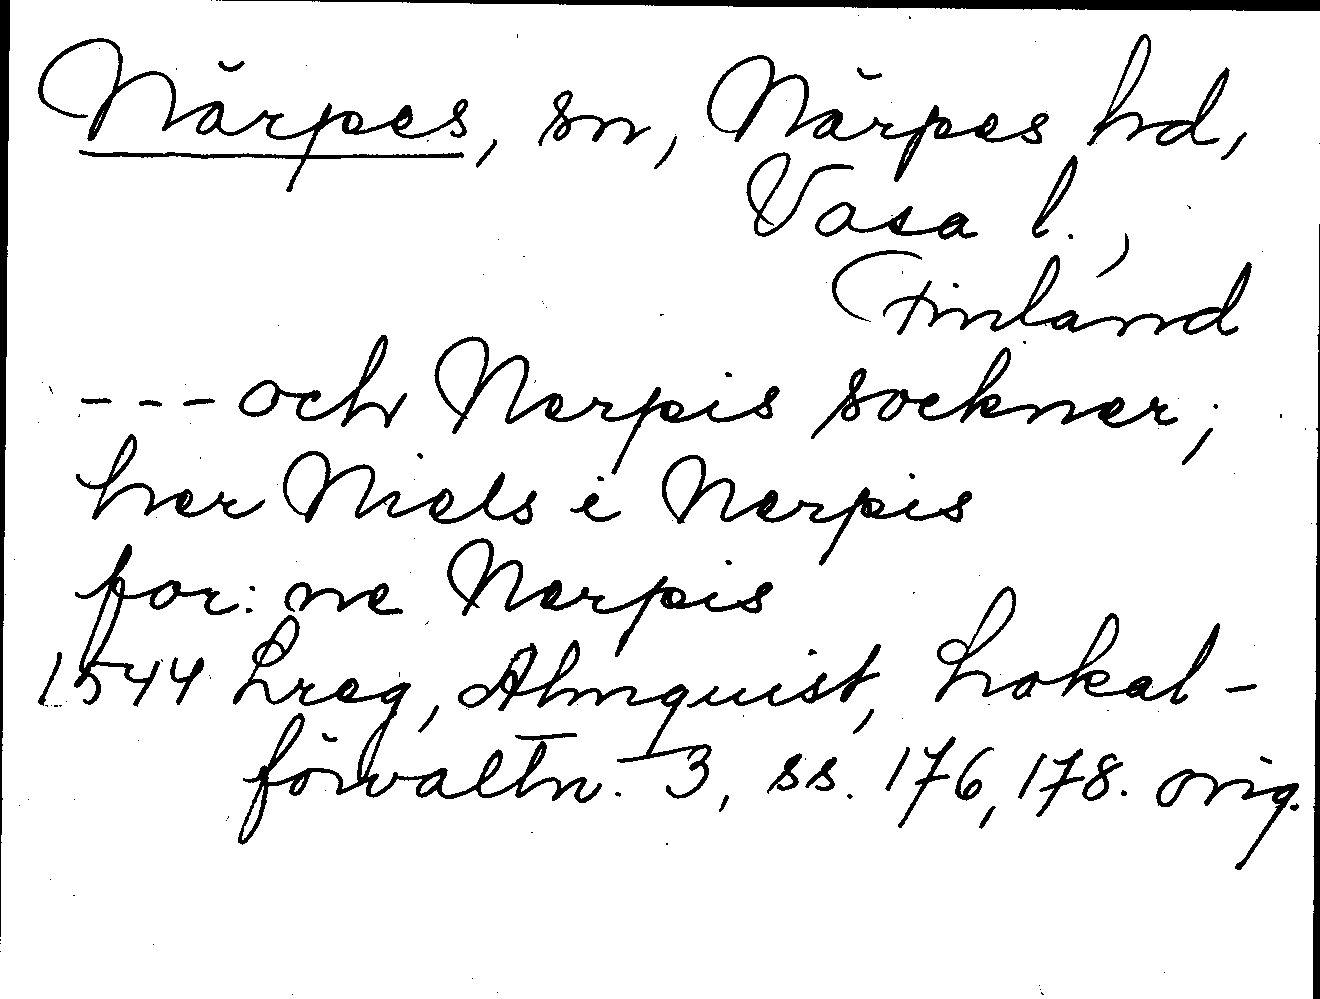 Närpes, sn, Närpes hd,
Vasa l.,
Finland
--- och Nerpis sockner;
her Niels i Nerpis
for:ne Nerpis
1544 Lreg, Almquist, Lokal-
förvaltn. 3, ss. 176, 178. orig.